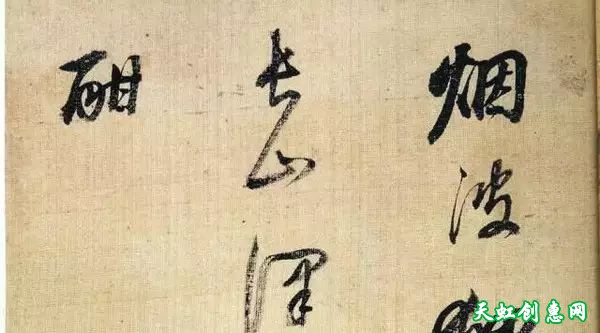 烟波
长山
酣
天虹创惠网